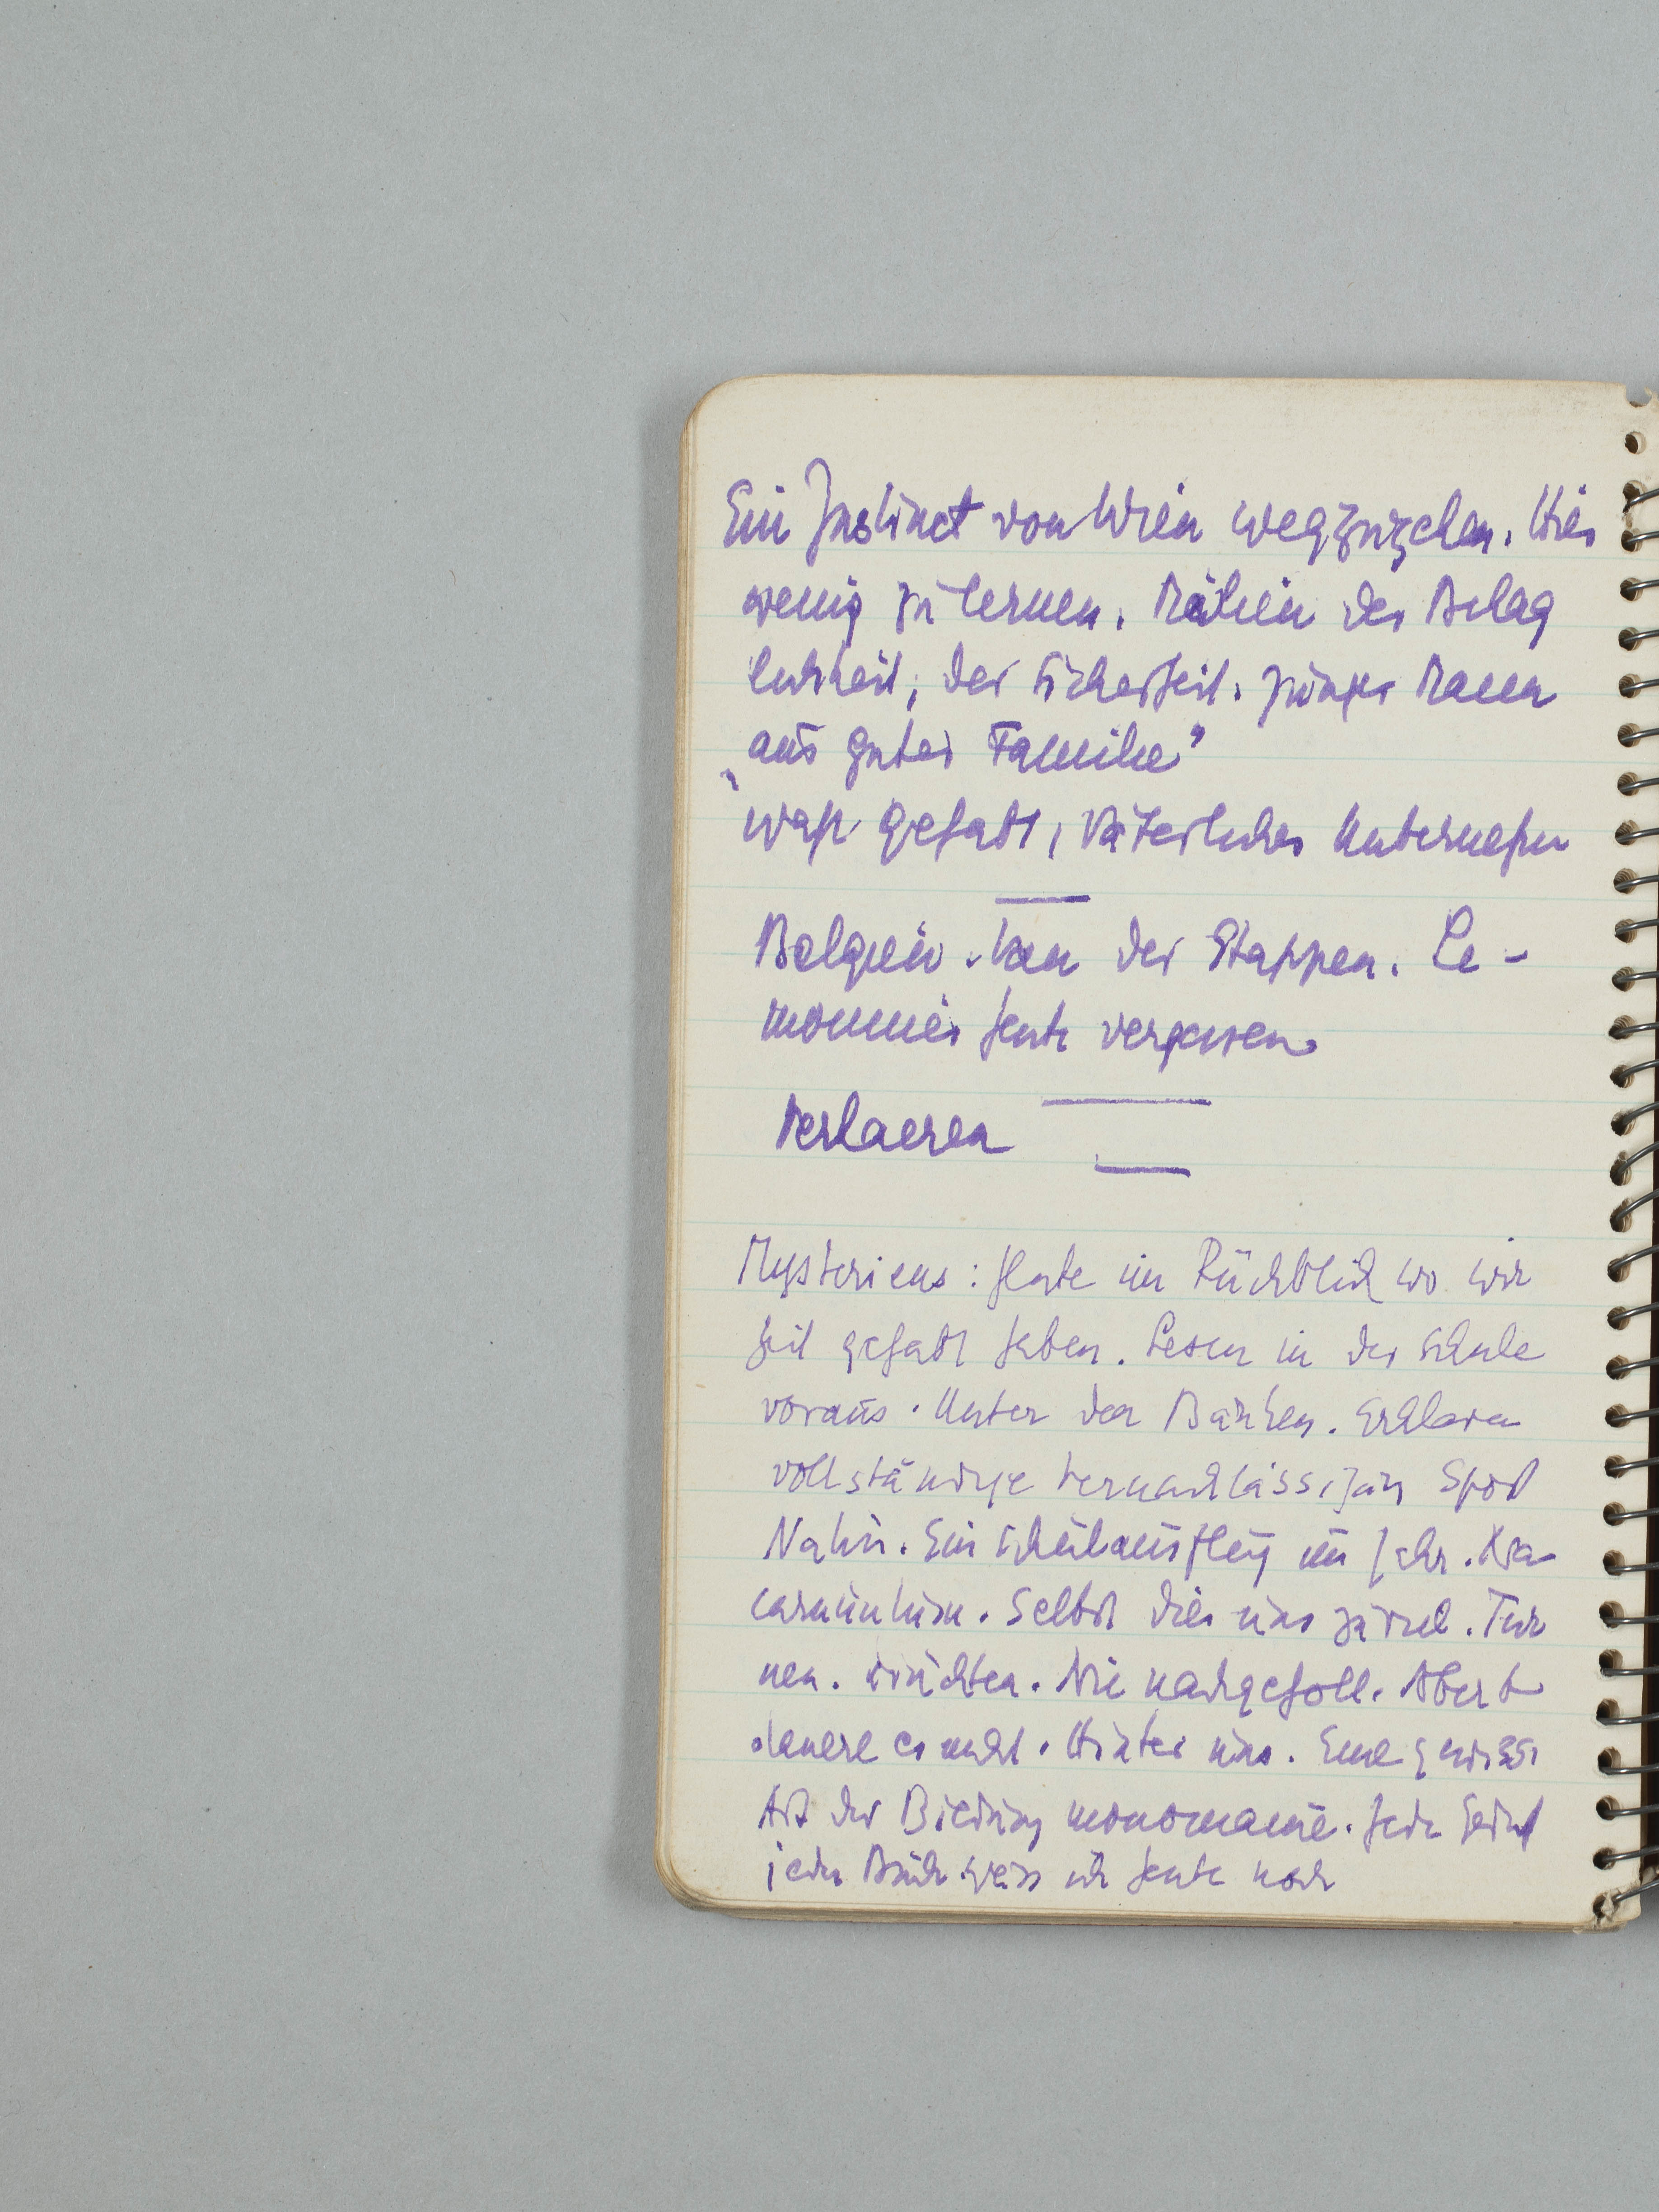 Ein Instinct von Wien wegzugehen. Hier
wenig zu lernen. Ruhein der Behag
lichkeit, der Sicherheit. Junger Mann
„aus guter Familie”
was gehabt, Väterliches Unternehm
Belgien. Van der Stappen. Le-
monnier heute vergessen
Verhaeren
Mysterium: Heute im Rückblick wo wir
Zeit gehabt haben. Lesen in der Schule
voraus. Unter den Bänken. Erklären
vollständige Vernachlässigung Sport
Natur. Ein Schulausflug im Jahr.
Selbst dies uns zu viel. Tur
nen. Nie nachgeholt. Aber be
dauere es nicht. Hinter uns. Eine gewisse
Art der Bildung monomanie. Jedes Gedicht
jedes Buch weiss ich heute noch